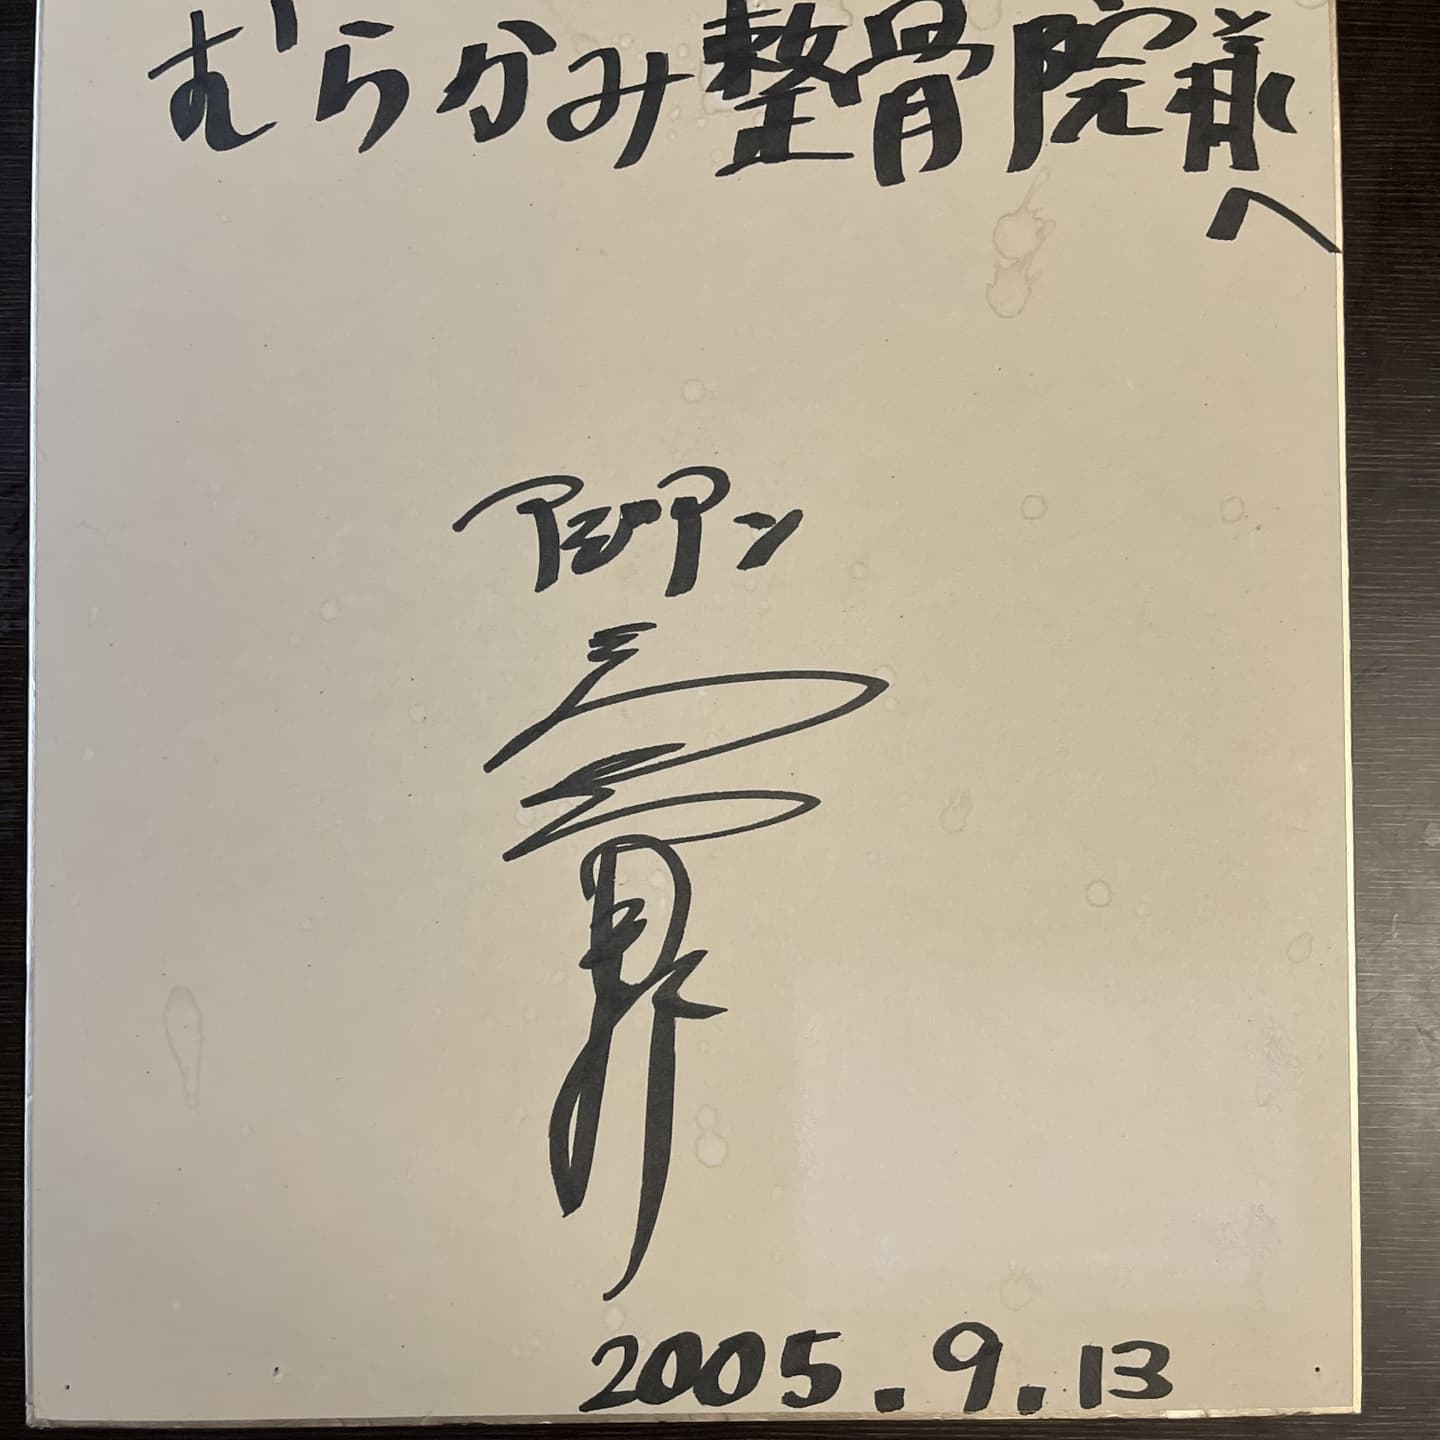 むらかみ整骨院様
へ
アジアン
2005.9.13